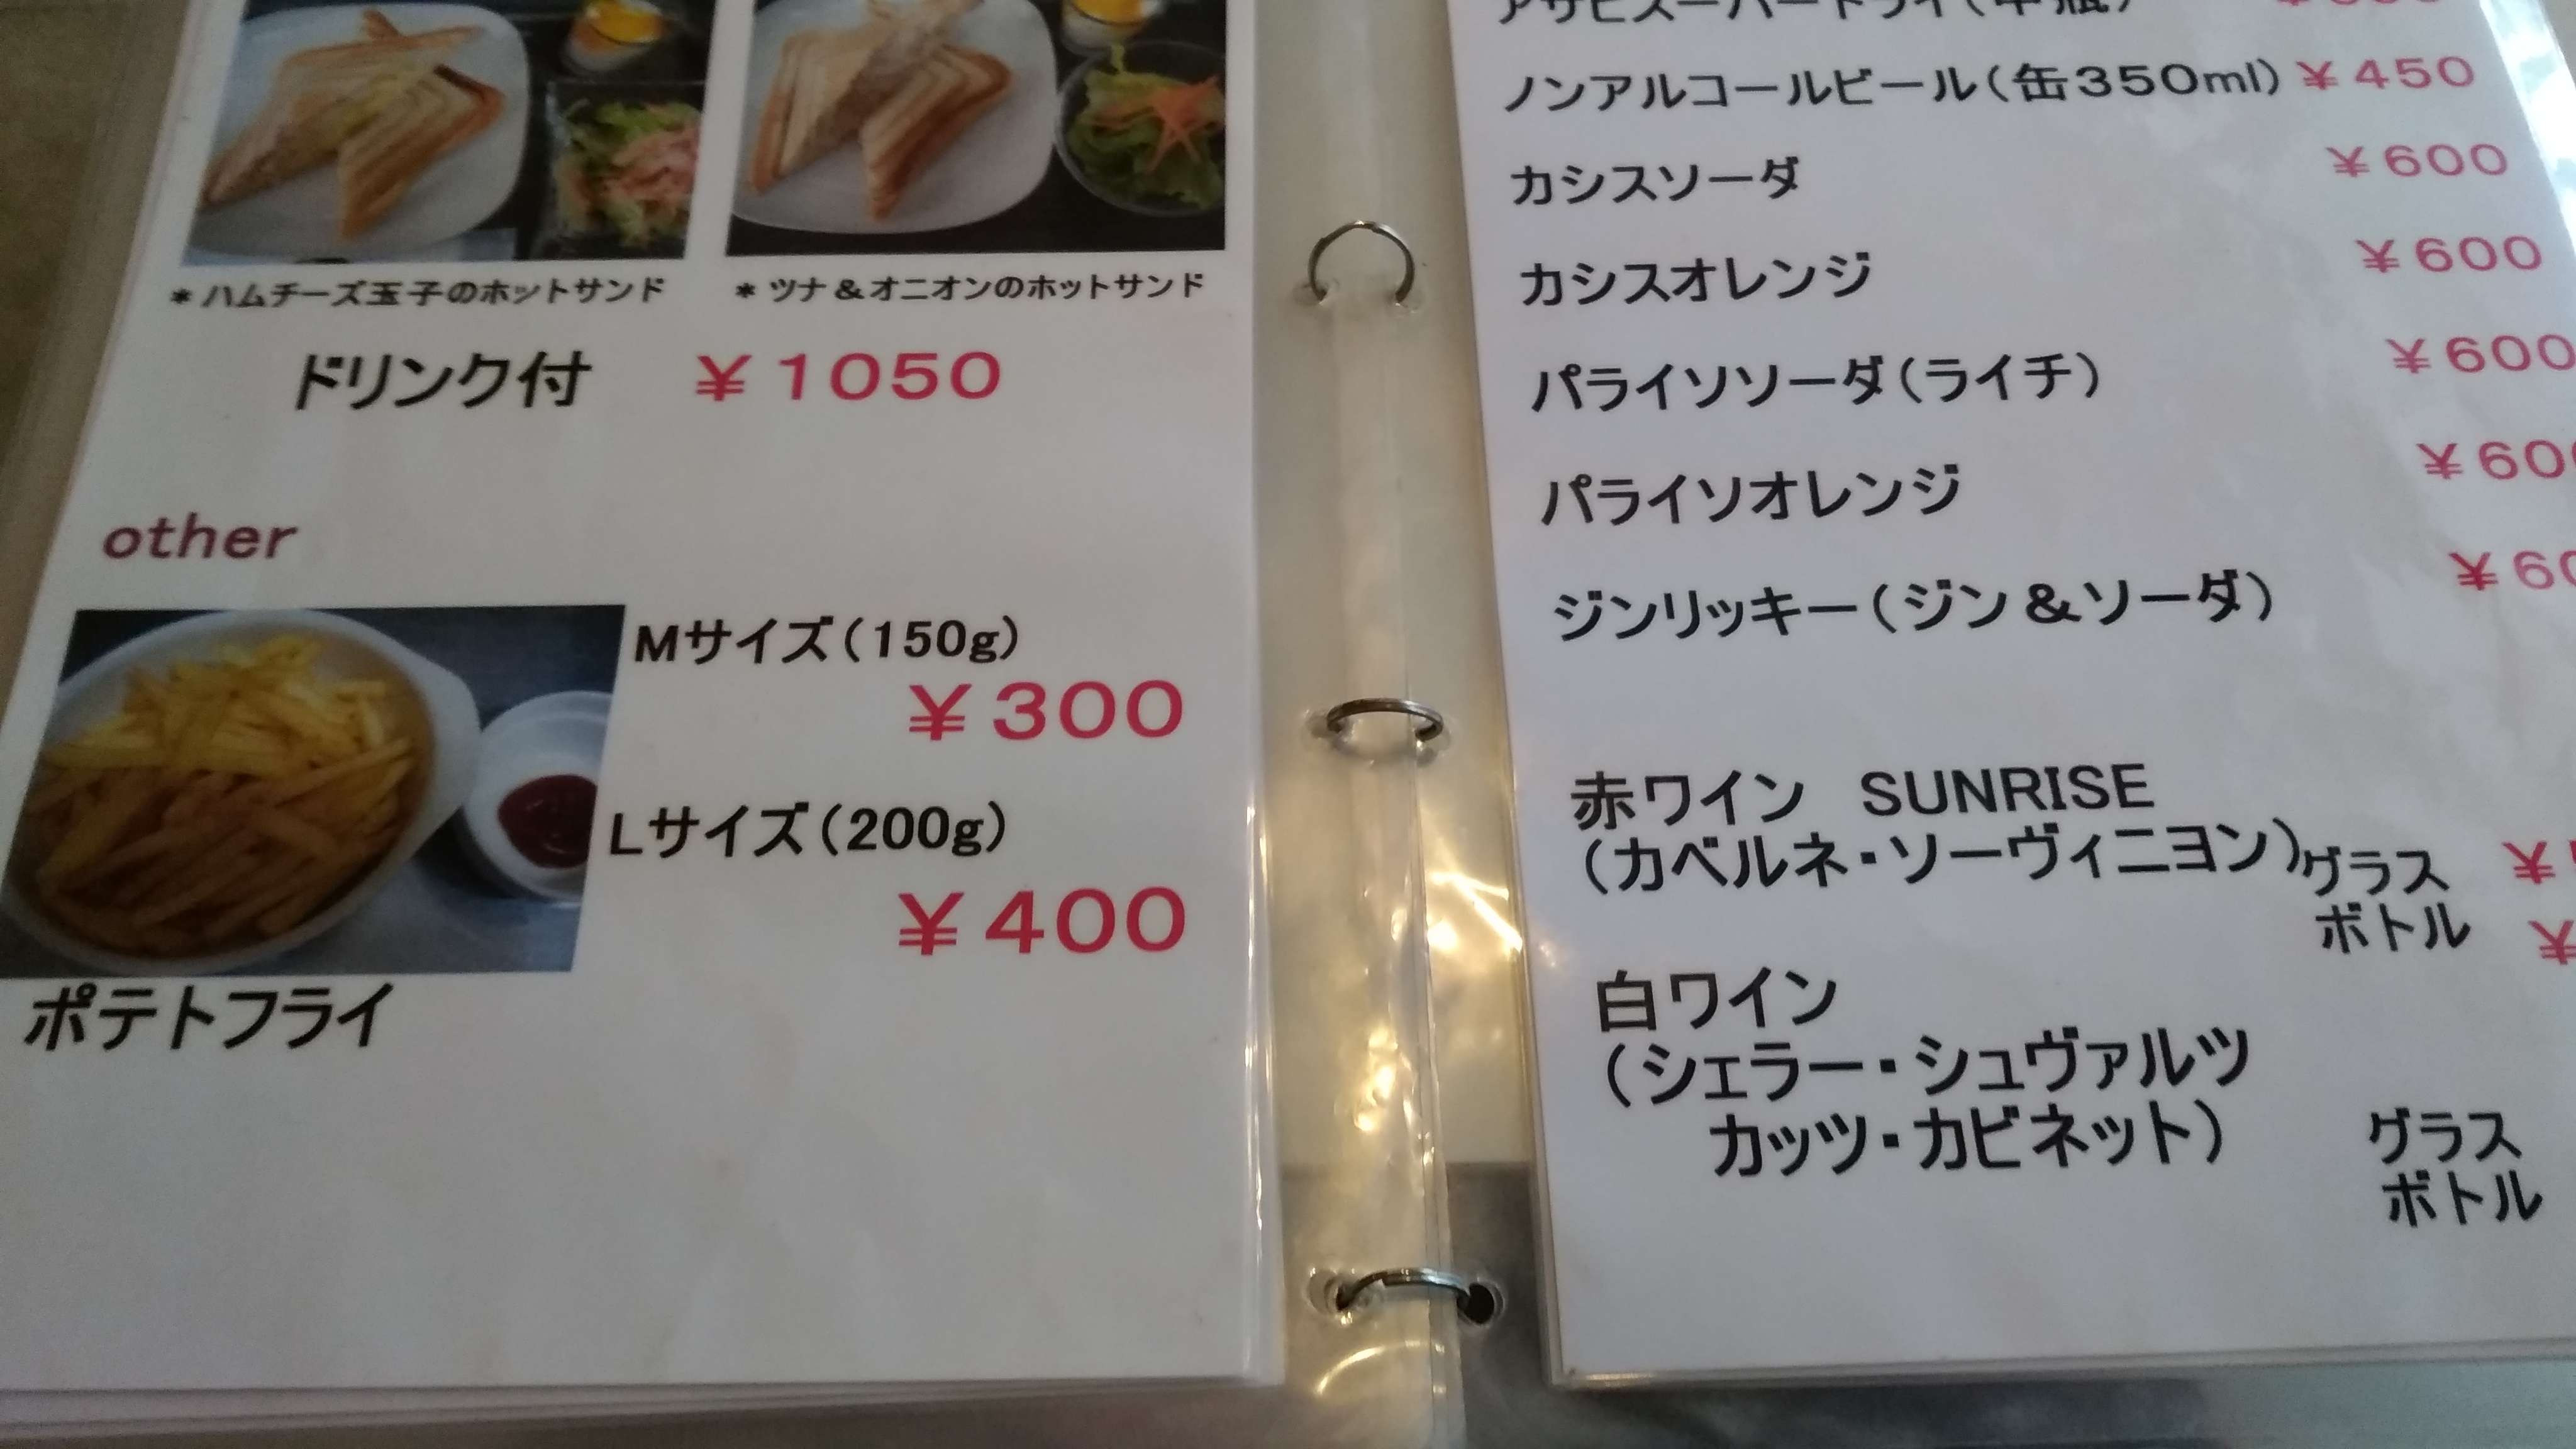 *ハムチーズ玉子のホットサンド
*ツナ&オニオンのホットサンド
ドリンク付 ¥1050
other
Mサイズ(150g)
¥300
Lサイズ(200g)
¥400
ポテトフライ
アサヒスーパードライ(中瓶)
ノンアルコールビール(缶350ml) ¥450
カシスソーダ ¥600
カシスオレンジ ¥600
パライソソーダ(ライチ) ¥600
パライソオレンジ ¥600
ジンリッキー(ジン&ソーダ) ¥60
赤ワイン SUNRISE
(カベルネ・ソーヴィニヨン)グラス ¥
ボトル ¥
白ワイン
(シェラー・シュヴァルツ
カッツ・カビネット)
グラス
ボトル